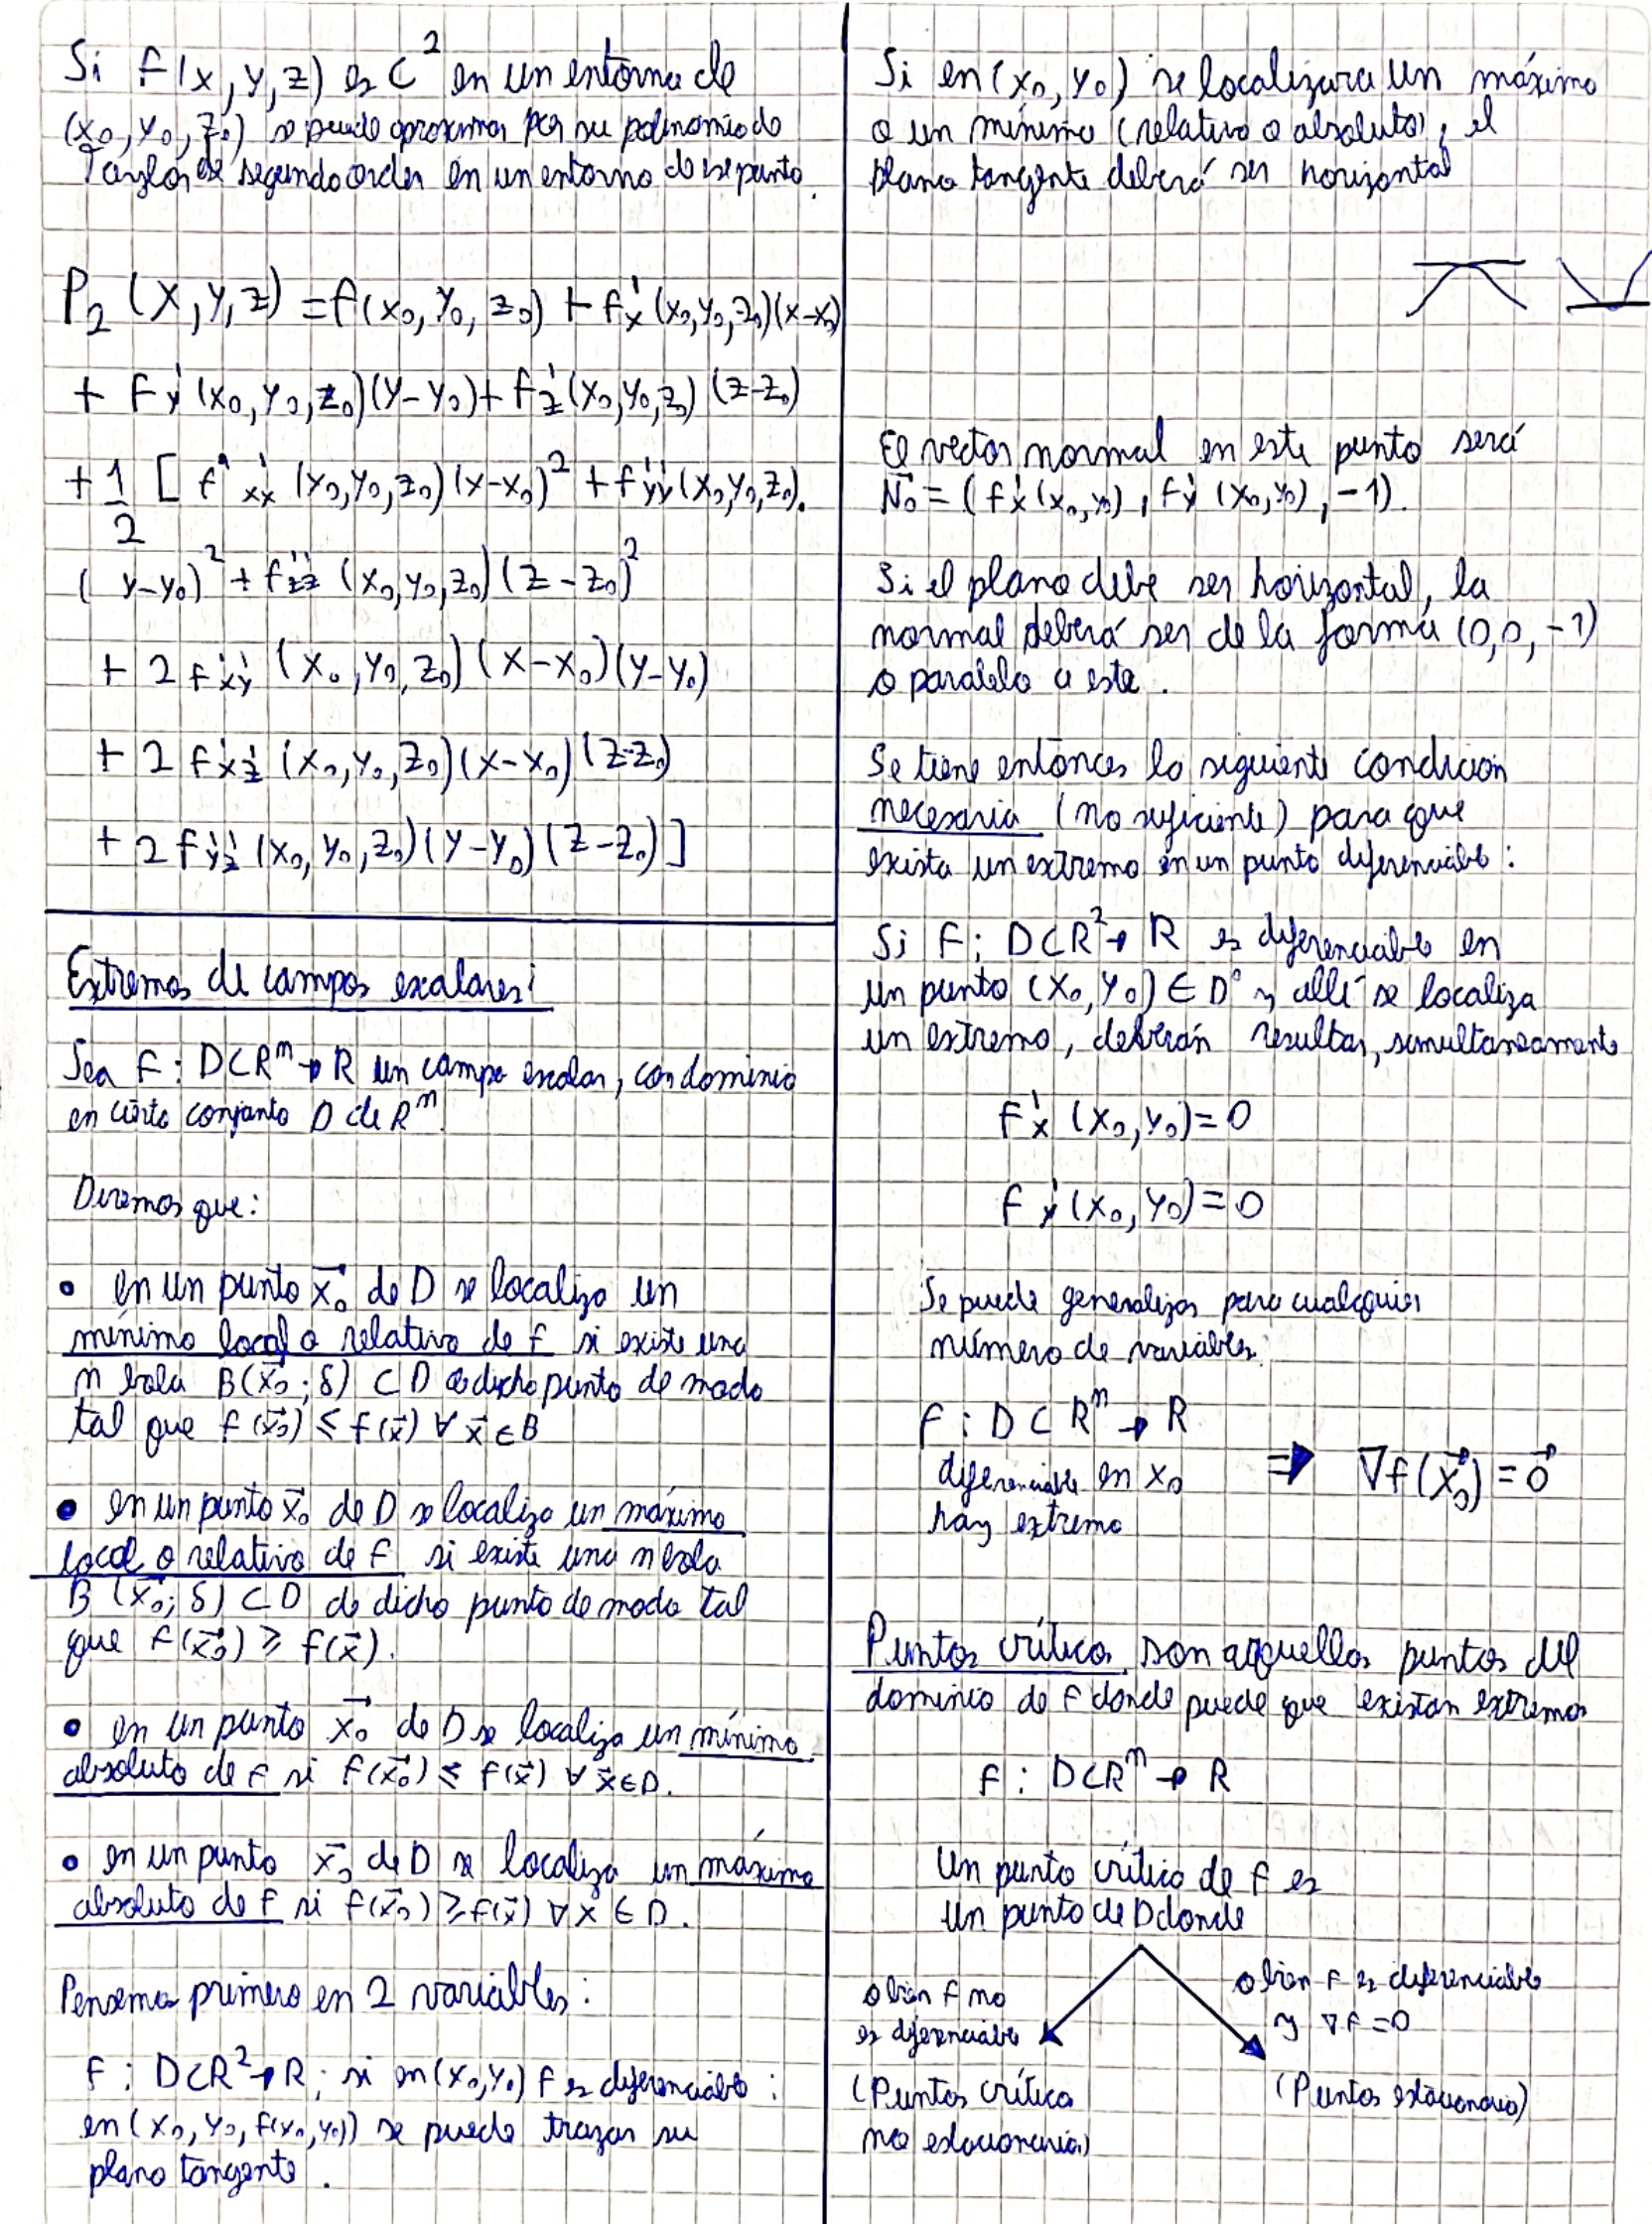 Si f(x,y,z) es C² en un entorno de
(x₀,y₀,z₀) se puede aproximar por su polinomio de
Taylor de segundo orden en un entorno de ese punto.
P₂(x,y,z) = f(x₀,y₀,z₀) + f'x(x₀,y₀,z₀)(x-x₀)
+ f'y(x₀,y₀,z₀)(y-y₀) + f'z(x₀,y₀,z₀)(z-z₀)
+ 1/2 [f''xx(x₀,y₀,z₀)(x-x₀)² + f''yy(x₀,y₀,z₀).
(y-y₀)² + f''zz(x₀,y₀,z₀)(z-z₀)²
+ 2f''xy(x₀,y₀,z₀)(x-x₀)(y-y₀)
+ 2f''xz(x₀,y₀,z₀)(x-x₀)(z-z₀)
+ 2f''yz(x₀,y₀,z₀)(y-y₀)(z-z₀)]
Extremos de campos escalares:
Sea f: D⊂Rⁿ→R un campo escalar, con dominio
en cierto conjunto D de Rⁿ.
Diremos que:
• en un punto x⃗₀ de D se localiza un
mínimo local o relativo de f si existe una
n bola B(x⃗₀;δ) ⊂ D de dicho punto de modo
tal que f(x⃗₀) ≤ f(x⃗) ∀ x⃗ ∈ B
• en un punto x⃗₀ de D se localiza un máximo
local o relativo de f si existe una n bola
B(x⃗₀;δ) ⊂ D de dicho punto de modo tal
que f(x⃗₀) ≥ f(x⃗).
• en un punto x⃗₀ de D se localiza un mínimo
absoluto de f si f(x⃗₀) ≤ f(x⃗) ∀ x⃗∈D.
• en un punto x⃗₀ de D se localiza un máximo
absoluto de f si f(x⃗₀) ≥ f(x⃗) ∀ x ∈ D.
Pensemos primero en 2 variables:
f: D⊂R²→R; si en (x₀,y₀) f es diferenciable:
en (x₀,y₀,f(x₀,y₀)) se puede trazar su
plano tangente.
Si en (x₀,y₀) se localizara un máximo
o un mínimo (relativo o absoluto), el
plano tangente deberá ser horizontal
El vector normal en este punto será
N⃗₀ = (f'x(x₀,y₀), f'y(x₀,y₀), -1).
Si el plano debe ser horizontal, la
normal deberá ser de la forma (0,0,-1)
o paralelo a este.
Se tiene entonces la siguiente condición
necesaria (no suficiente) para que
exista un extremo en un punto diferenciable:
Si f: D⊂R²→R es diferenciable en
un punto (x₀,y₀) ∈ D° y allí se localiza
un extremo, deberán resultar, simultaneamente
f'x(x₀,y₀)=0
f'y(x₀,y₀)=0
Se puede generalizar para cualquier
número de variables:
f: D⊂Rⁿ→R
diferenciable en x₀ ⇒ ∇f(x⃗₀)=0⃗
hay extremo
Puntos críticos son aquellos puntos del
dominio de f donde puede que existan extremos
f: D⊂Rⁿ→R
Un punto crítico de f es
un punto de D donde
o bien f no
es diferenciable
(Puntos críticos
no estacionarios)
o bien f es diferenciable
y ∇f=0
(Puntos estacionarios)